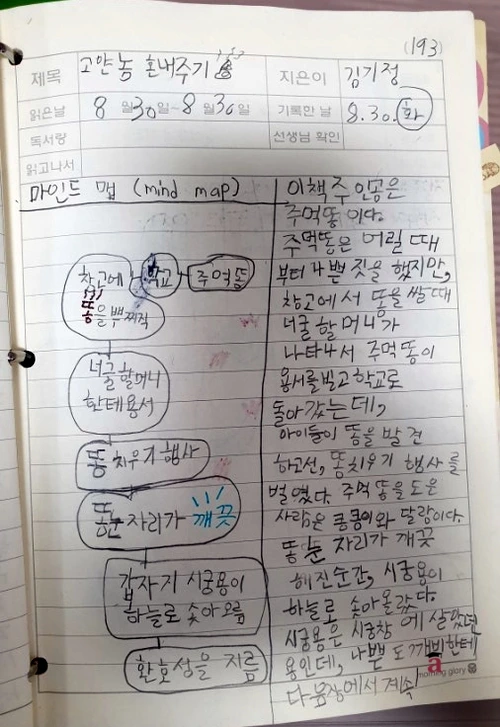 (193)
제목 고얀놈 혼내주기 지은이 김기정
읽은날 8월30일~8월30일 기록한 날 8.30.화
독서량 선생님 확인
읽고나서
마인드 맵 (mind map)
창고에
똥을 뿌찌직
학교
주먹똥
너굴할머니
한테용서
똥치우기행사
똥눈 자리가 깨끗
갑자기 시궁용이
하늘로 솟아오름
환호성을 지름
이책 주인공은
주먹똥이다.
주먹똥은 어릴 때
부터 나쁜 짓을 했지만,
창고에서 똥을 쌀때
너굴할머니가
나타나서 주먹똥이
용서를빌고 학교로
돌아갔는데,
아이들이 똥을 발견
하고선, 똥치우기 행사를
벌였다. 주먹똥을 도운
사람은 킁킁이와 달랑이다.
똥눈 자리가 깨끗
해진순간, 시궁용이
하늘로 솟아올랐다.
시궁용은 시궁창에 살았던
용인데, 나쁜 도깨비한테
다음장에서 계속!
a
morning glory